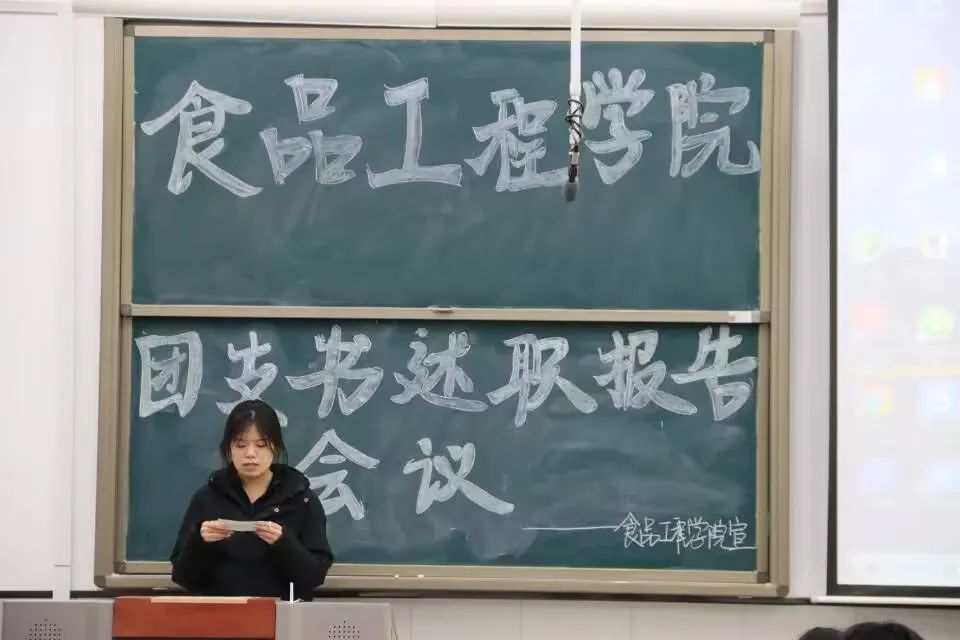 食品工程学院
团支书述职报告
会议
——食品工程学院宣